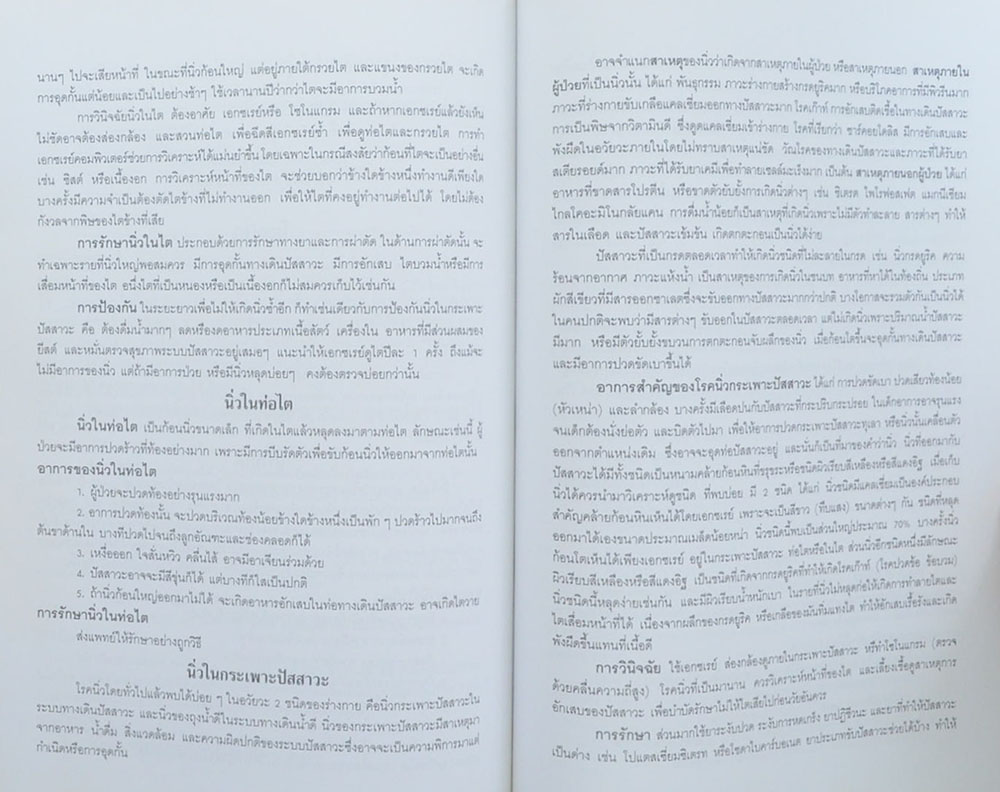 นานๆ ไปจะเสียหน้าที่ ในขณะที่นิ่วก้อนใหญ่ แต่อยู่ภายใต้กรวยไต และแขนงของกรวยไต จะเกิด
การอุดกั้นแต่น้อยและเป็นไปอย่างช้าๆ ใช้เวลานานปีกว่าไตจะมีอาการบวมน้ำ
การวินิจฉัยนิ่วในไต ต้องอาศัย เอกซเรย์หรือ โซโนแกรม และถ้าหากเอกซเรย์แล้วยังเห็น
ไม่ชัดอาจต้องส่องกล้อง และสวนท่อไต เพื่อฉีดสีเอกซเรย์ซ้ำ เพื่อดูท่อไตและกรวยไต การทำ
เอกซเรย์คอมพิวเตอร์ช่วยการวิเคราะห์ได้แม่นยำขึ้น โดยเฉพาะในกรณีสงสัยว่าก้อนที่ไตจะเป็นอย่างอื่น
เช่น ซิสต์ หรือเนื้องอก การวิเคราะห์หน้าที่ของไต จะช่วยบอกว่าข้างใดข้างหนึ่งทำงานดีเพียงใด
บางครั้งมีความจำเป็นต้องตัดไตข้างที่ไม่ทำงานออก เพื่อให้ไตที่คงอยู่ทำงานต่อไปได้ โดยไม่ต้อง
กังวลจากพิษของไตข้างที่เสีย
การรักษานิ่วในไต ประกอบด้วยการรักษาทางยาและการผ่าตัด ในด้านการผ่าตัดนั้น จะ
ทำเฉพาะรายที่นิ่วใหญ่พอสมควร มีการอุดกั้นทางเดินปัสสาวะ มีการอักเสบ ไตบวมน้ำหรือมีการ
เสื่อมหน้าที่ของไต อนึ่งไตที่เป็นหนองหรือเป็นเนื้องอกก็ไม่สมควรเก็บไว้เช่นกัน
การป้องกัน ในระยะยาวเพื่อไม่ให้เกิดนิ่วซ้ำอีก ก็ทำเช่นเดียวกับการป้องกันนิ่วในกระเพาะ
ปัสสาวะ คือ ต้องดื่มน้ำมากๆ ลดหรืองดอาหารประเภทเนื้อสัตว์ เครื่องใน อาหารที่มีส่วนผสมของ
ยีสต์ และหมั่นตรวจสุขภาพระบบปัสสาวะอยู่เสมอๆ แนะนำให้เอกซเรย์ดูไตปีละ 1 ครั้ง ถึงแม้จะ
ไม่มีอาการของนิ่ว แต่ถ้ามีอาการป่วย หรือมีนิ่วหลุดบ่อยๆ คงต้องตรวจบ่อยกว่านั้น
นิ่วในท่อไต
นิ่วในท่อไต เป็นก้อนนิ่วขนาดเล็ก ที่เกิดในไตแล้วหลุดลงมาตามท่อไต ลักษณะเช่นนี้ ผู้
ป่วยจะมีอาการปวดร้าวที่ท้องอย่างมาก เพราะมีการบีบรัดตัวเพื่อขับก้อนนิ่วให้ออกมาจากท่อไตนั้น
อาการของนิ่วในท่อไต
1. ผู้ป่วยจะปวดท้องอย่างรุนแรงมาก
2. อาการปวดท้องนั้น จะปวดบริเวณท้องน้อยข้างใดข้างหนึ่งเป็นพัก ๆ ปวดร้าวไปมากจนถึง
ต้นขาด้านใน บางทีปวดไปจนถึงลูกอัณฑะและช่องคลอดก็ได้
3. เหงื่อออก ใจสั่นหวิว คลื่นไส้ อาจมีอาเจียนร่วมด้วย
4. ปัสสาวะอาจจะมีสีขุ่นก็ได้ แต่บางทีก็ใสเป็นปกติ
5. ถ้านิ่วก้อนใหญ่ออกมาไม่ได้ จะเกิดอาหารอักเสบในท่อทางเดินปัสสาวะ อาจเกิดไตวาย
การรักษานิ่วในท่อไต
ส่งแพทย์ให้รักษาอย่างถูกวิธี
นิ่วในกระเพาะปัสสาวะ
โรคนิ่วโดยทั่วไปแล้วพบได้บ่อย ๆ ในอวัยวะ 2 ชนิดของร่างกาย คือนิ่วกระเพาะปัสสาวะใน
ระบบทางเดินปัสสาวะ และนิ่วของถุงน้ำดีในระบบทางเดินน้ำดี นิ่วของกระเพาะปัสสาวะมีสาเหตุมา
จากอาหาร น้ำดื่ม สิ่งแวดล้อม และความผิดปกติของระบบปัสสาวะซึ่งอาจจะเป็นความพิการมาแต่
กำเนิดหรือการอุดกั้น
อาจจำแนกสาเหตุของนิ่วว่าเกิดจากสาเหตุภายในผู้ป่วย หรือสาเหตุภายนอก สาเหตุภายใน
ผู้ป่วยที่เป็นนิ่วนั้น ได้แก่ พันธุกรรม ภาวะร่างกายสร้างกรดยูริคมาก หรือบริโภคอาการที่มีพิวรีนมาก
ภาวะที่ร่างกายขับเกลือแคลเซี่ยมออกทางปัสสาวะมาก โรคเก๊าท์ การอักเสบติดเชื้อในทางเดินปัสสาวะ
การเป็นพิษจากวิตามินดี ซึ่งดูดแคลเซี่ยมเข้าร่างกาย โรคที่เรียกว่า ซาร์คอยโดสิส มีการอักเสบและ
พังผืดในอวัยวะภายในโดยไม่ทราบสาเหตุแน่ชัด วัณโรคของทางเดินปัสสาวะและภาวะที่ได้รับยา
สเตียรอยด์มาก ภาวะที่ได้รับยาเคมีเพื่อทำลายเซลล์มะเร็งมาก เป็นต้น สาเหตุภายนอกผู้ป่วย ได้แก่
อาหารที่ขาดสารโปรตีน หรือขาดตัวยับยั้งการเกิดนิ่วต่างๆ เช่น ซิเตรด ไพโรฟอสเฟต แมกนีเซียม
ไกลโคอะมิโนกลัยแคน การดื่มน้ำน้อยก็เป็นสาเหตุที่เกิดนิ่วเพราะไม่มีตัวทำละลาย สารต่างๆ ทำให้
สารในเลือด และปัสสาวะเข้มข้น เกิดตกตะกอนเป็นนิ่วได้ง่าย
ปัสสาวะที่เป็นกรดตลอดเวลาทำให้เกิดนิ่วชนิดที่ไม่ละลายในกรด เช่น นิ่วกรดยูริค ความ
ร้อนจากอากาศ ภาวะแห้งน้ำ เป็นสาเหตุของการเกิดนิ่วในชนบท อาหารที่หาได้ในท้องถิ่น ประเภท
ผักสีเขียวที่มีสารออกซาเลตซึ่งจะขับออกทางปัสสาวะมากกว่าปกติ บางโอกาสจะรวมตัวกันเป็นนิ่วได้
ในคนปกติจะพบว่ามีสารต่างๆ ขับออกในปัสสาวะตลอดเวลา แต่ไม่เกิดนิ่วเพราะปริมาณน้ำปัสสาวะ
มีมาก หรือมีตัวยับยั้งขบวนการตกตะกอนจับผลึกของนิ่ว เมื่อก้อนโตขึ้นจะอุดกั้นทางเดินปัสสาวะ
และมีอาการปวดขัดเบาขึ้นได้
อาการสำคัญของโรคนิ่วกระเพาะปัสสาวะ ได้แก่ การปวดขัดเบา ปวดเสียวท้องน้อย
(หัวเหน่า) และลำกล้อง บางครั้งมีเลือดปนกับปัสสาวะที่กระปริบกระปรอย ในเด็กอาการอาจรุนแรง
จนเด็กต้องนั่งย่อตัว และบิดตัวไปมา เพื่อให้อาการปวดกระเพาะปัสสาวะทุเลา หรือนิ่วนั้นเคลื่อนตัว
ออกจากตำแหน่งเดิม ซึ่งอาจจะอุดท่อปัสสาวะอยู่ และนั่นก็เป็นที่มาของคำว่านิ่ว นิ่วที่ออกมากับ
ปัสสาวะได้มีทั้งชนิดเป็นหนามคล้ายก้อนหินที่ขรุขระหรือชนิดผิวเรียบสีเหลืองหรือสีแดงอิฐ เมื่อเก็บ
นิ่วได้ควรนำมาวิเคราะห์ดูชนิด ที่พบบ่อย มี 2 ชนิด ได้แก่ นิ่วชนิดมีแคลเซี่ยมเป็นองค์ประกอบ
สำคัญคล้ายก้อนหินเห็นได้โดยเอกซเรย์ เพราะจะเป็นสีขาว (ทึบแสง) ขนาดต่างๆ กัน ชนิดที่หลุด
ออกมาได้เองขนาดประมาณเมล็ดน้อยหน่า นิ่วชนิดนี้พบเป็นส่วนใหญ่ประมาณ 70% บางครั้งนิ่ว
ก้อนโตเห็นได้เพียงเอกซเรย์ อยู่ในกระเพาะปัสสาวะ ท่อไตหรือในไต ส่วนนิ่วอีกชนิดหนึ่งมีลักษณะ
ผิวเรียบสีเหลืองหรือสีแดงอิฐ เป็นชนิดที่เกิดจากกรดยูริคที่ทำให้เกิดโรคเก๊าท์ (โรคปวดข้อ ข้อบวม)
นิ่วชนิดนี้หลุดง่ายเช่นกัน และมีผิวเรียบน้ำหนักเบา ในรายที่นิ่วไม่หลุดก่อให้เกิดการทำลายไตและ
ไตเสื่อมหน้าที่ได้ เนื่องจากผลึกของกรดยูริค หรือเกลือของมันทิ่มแทงไต ทำให้อักเสบเรื้อรังและเกิด
พังผืดขึ้นแทนที่เนื้อดี
การวินิจฉัย ใช้เอกซเรย์ ส่องกล้องดูภายในกระเพาะปัสสาวะ หรือทำโซโนแกรม (ตรวจ
ด้วยคลื่นความถี่สูง) โรคนิ่วที่เป็นมานาน ควรวิเคราะห์หน้าที่ของไต และเลี้ยงเชื้อดูสาเหตุการ
อักเสบของปัสสาวะ เพื่อบำบัดรักษาไม่ให้ไตเสียไปก่อนวัยอันควร
การรักษา ส่วนมากใช้ยาระงับปวด ระงับการหดเกร็ง ยาปฏิชีวนะ และยาที่ทำให้ปัสสาวะ
เป็นด่าง เช่น โปแตสเซี่ยมซิเตรท หรือโซดาไบคาร์บอเนต ยาประเภทขับปัสสาวะช่วยได้บ้าง ทำให้